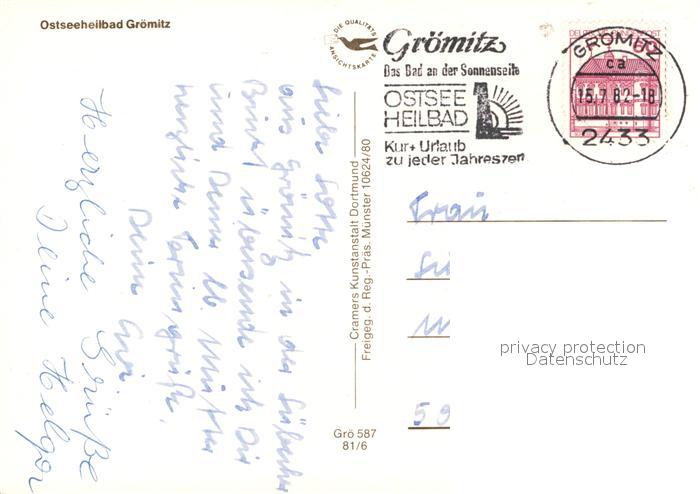 Ostseeheilbad Grömitz
DIE QUALITÄTS
ANSICHTSKARTE
Grömitz
Das Bad an der Sonnenseite
OSTSEE
HEILBAD
Kur + Urlaub
zu jeder Jahreszeit
GRÖMITZ
ca
15.7.82-18
2433
Liebe Lotte
aus Grömitz in der Lübecker
Bucht übersende ich Dir
und Deiner lb. Mutter
herzliche Feriengrüße.
Deine
Herzliche Grüße
Deine Helga
Cramers Kunstanstalt Dortmund
Freigeg. d. Reg.-Präs. Münster 10624/80
Grö 587
81/6
Frau
W
59
privacy protection
Datenschutz